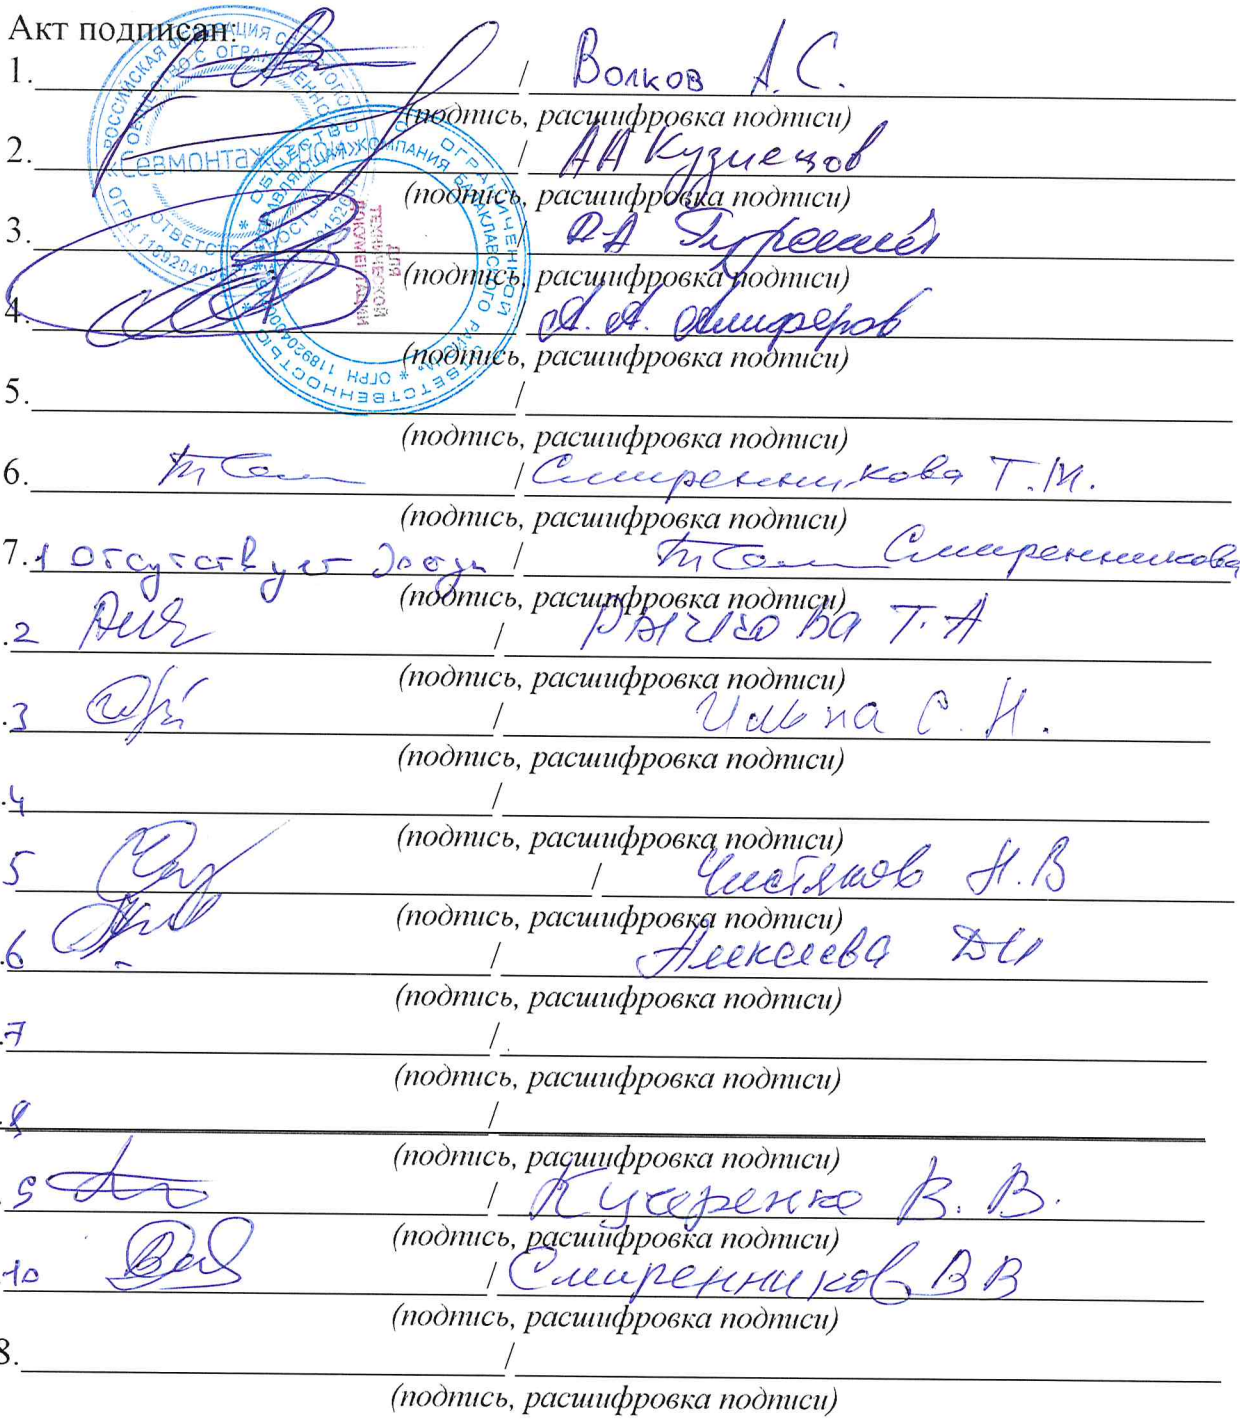 Акт подписан:
1. / Волков А.С.
(подпись, расшифровка подписи)
2. / АА Кузнецов
(подпись, расшифровка подписи)
3. / А.А
(подпись, расшифровка подписи)
4. / А.А. Алиферов
(подпись, расшифровка подписи)
5. /
(подпись, расшифровка подписи)
6. / Смиренникова Т.М.
(подпись, расшифровка подписи)
7.1 отсутствует / Смиренникова
(подпись, расшифровка подписи)
.2 / Рычкова Т.А
(подпись, расшифровка подписи)
.3 / Ильина С.Н.
(подпись, расшифровка подписи)
.4 /
(подпись, расшифровка подписи)
5 / Чистяков Н.В
(подпись, расшифровка подписи)
.6 / Алексеева ДИ
(подпись, расшифровка подписи)
.7 /
(подпись, расшифровка подписи)
.8 /
(подпись, расшифровка подписи)
.9 / Кучеренко В.В.
(подпись, расшифровка подписи)
.10 / Смиренников ВВ
(подпись, расшифровка подписи)
8. /
(подпись, расшифровка подписи)
РОССИЙСКАЯ ФЕДЕРАЦИЯ
ОБЩЕСТВО С ОГРАНИЧЕННОЙ
* ОБЩЕСТВО С ОГРАНИЧЕННОЙ ОТВЕТСТВЕННОСТЬЮ *
КОМПАНИЯ БАЛАКЛАВСКОГО РАЙОНА" * ОГРН
ДЛЯ
ТЕХНИЧЕСКОЙ
ДОКУМЕНТАЦИИ